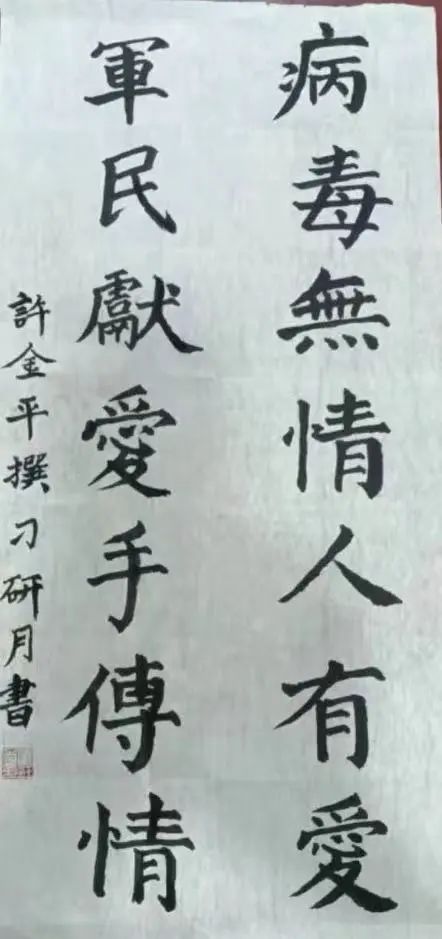 病毒無情人有愛
軍民獻愛手傳情
許金平撰刁研月書